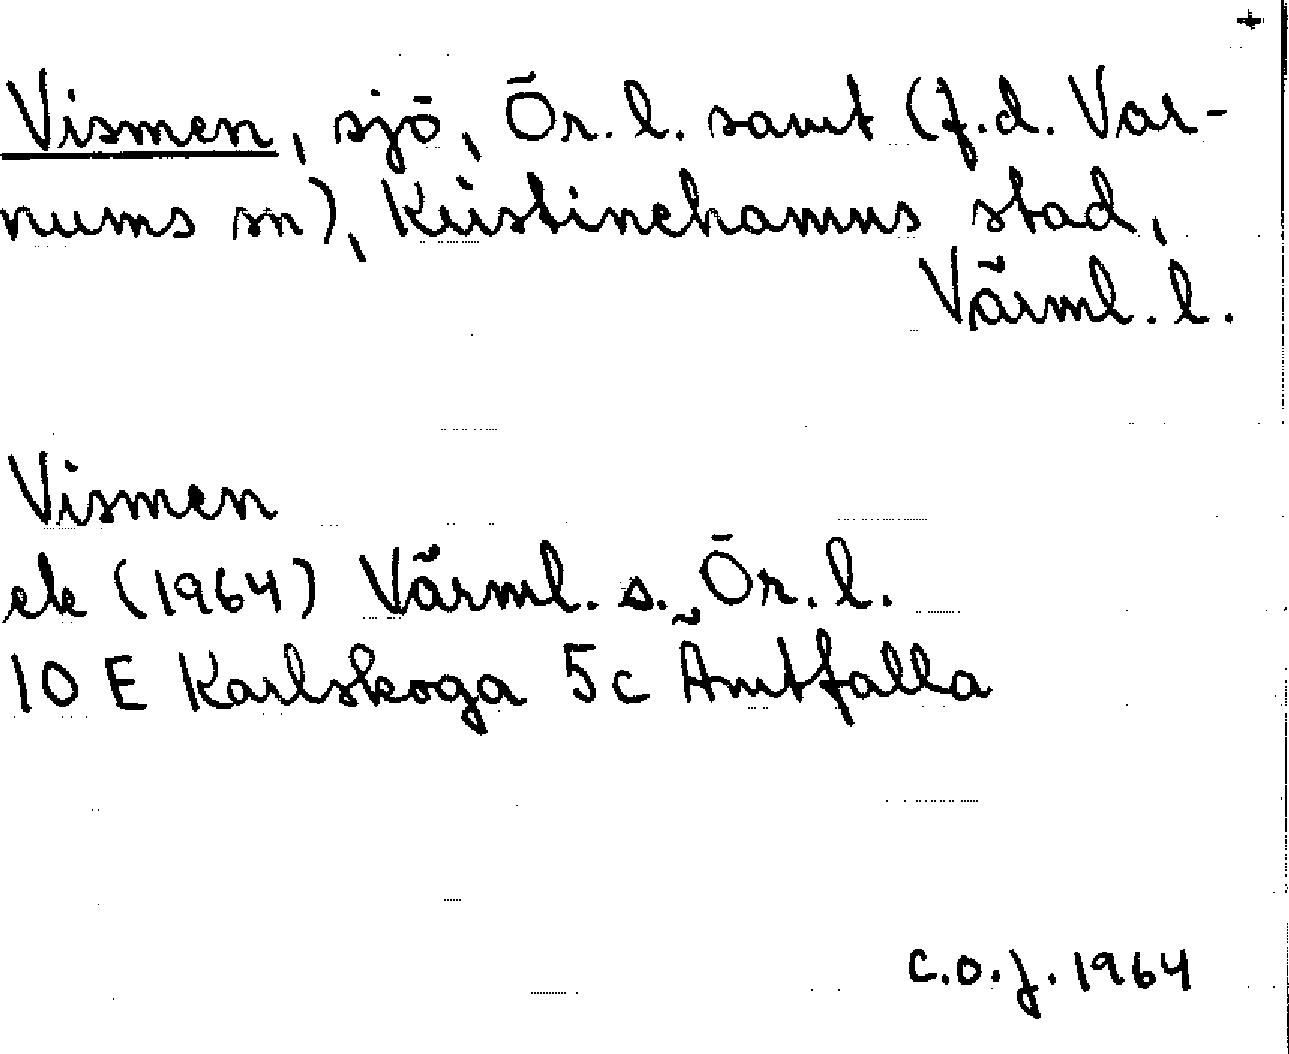 +
Vismen, sjö, Ör. l. samt (f.d. Var-
nums sn), Kristinehamns stad,
Värml. l.
Vismen
ek (1964) Värml. s. Ör. l.
10 E Karlskoga 5c Ämtfalla
C.O.J. 1964